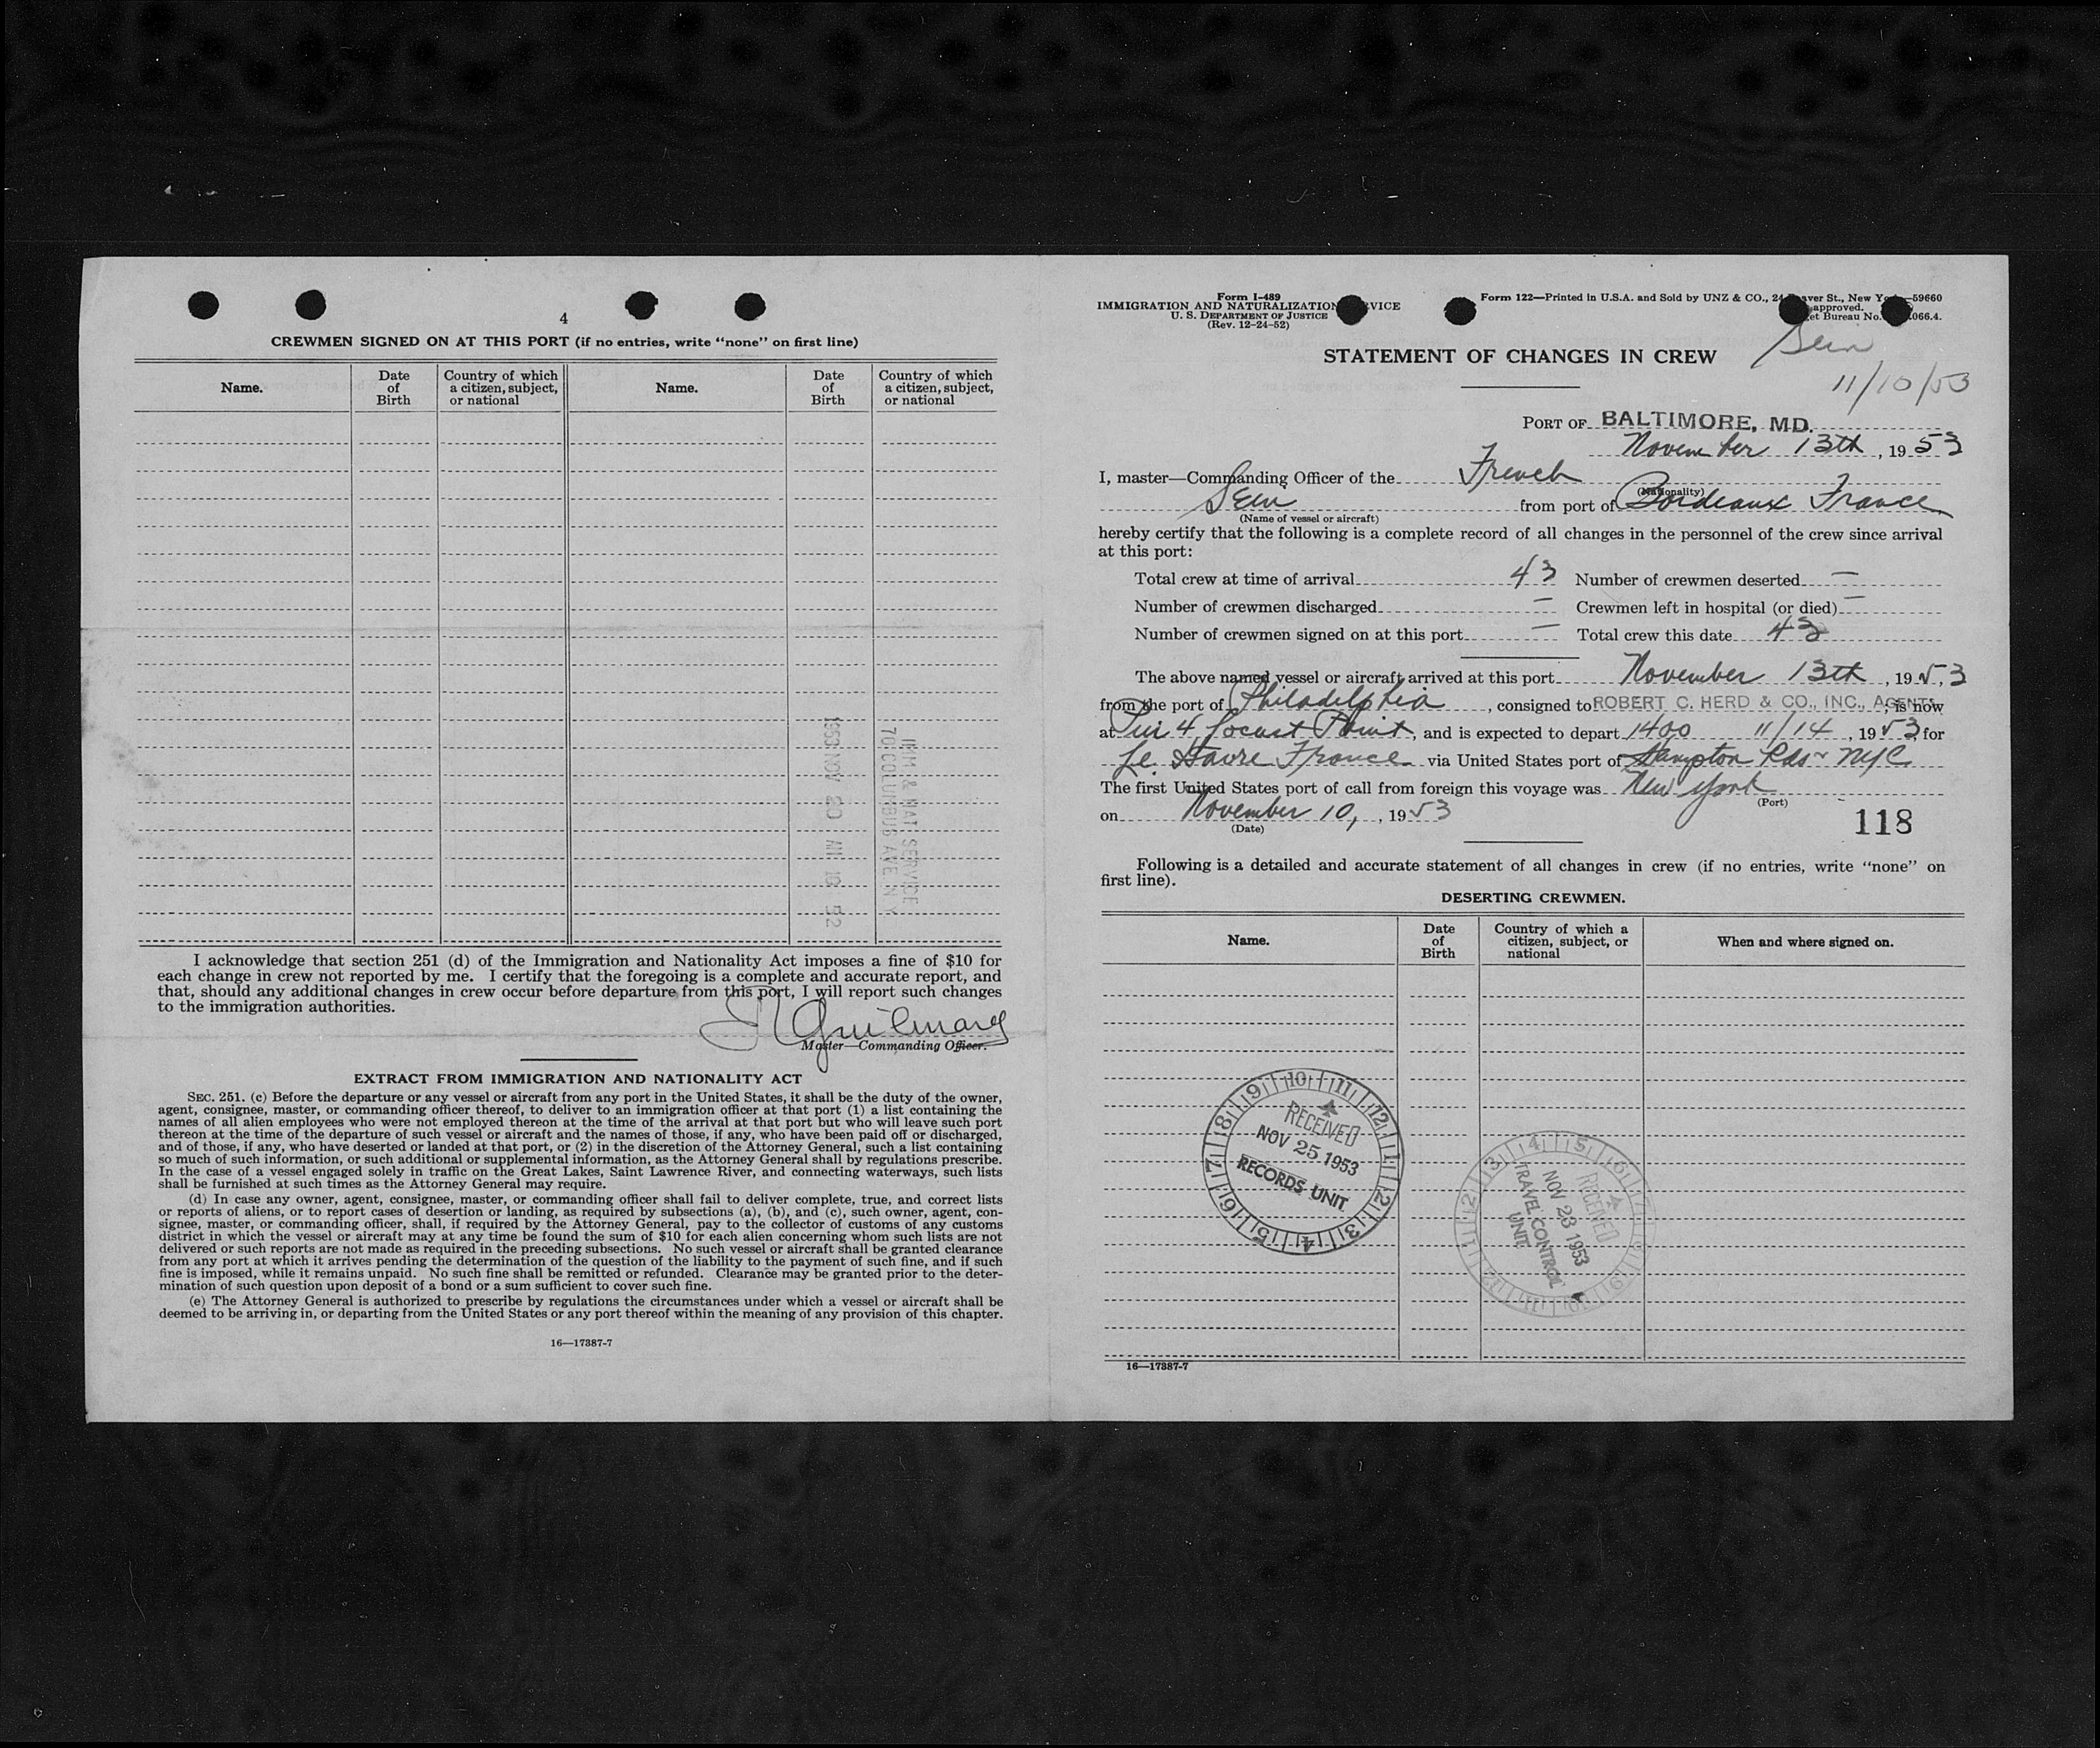 4
CREWMEN SIGNED ON AT THIS PORT (if no entries, write "none" on first line)
Name.
Date of Birth
Country of which a citizen, subject, or national
Name.
Date of Birth
Country of which a citizen, subject, or national
IMM & NAT SERVICE
70 COLUMBUS AVE N Y
1953 NOV 20 AM 10 52
I acknowledge that section 251 (d) of the Immigration and Nationality Act imposes a fine of $10 for
each change in crew not reported by me. I certify that the foregoing is a complete and accurate report, and
that, should any additional changes in crew occur before departure from this port, I will report such changes
to the immigration authorities.
Master—Commanding Officer.
EXTRACT FROM IMMIGRATION AND NATIONALITY ACT
SEC. 251. (c) Before the departure or any vessel or aircraft from any port in the United States, it shall be the duty of the owner,
agent, consignee, master, or commanding officer thereof, to deliver to an immigration officer at that port (1) a list containing the
names of all alien employees who were not employed thereon at the time of the arrival at that port but who will leave such port
thereon at the time of the departure of such vessel or aircraft and the names of those, if any, who have been paid off or discharged,
and of those, if any, who have deserted or landed at that port, or (2) in the discretion of the Attorney General, such a list containing
so much of such information, or such additional or supplemental information, as the Attorney General shall by regulations prescribe.
In the case of a vessel engaged solely in traffic on the Great Lakes, Saint Lawrence River, and connecting waterways, such lists
shall be furnished at such times as the Attorney General may require.
(d) In case any owner, agent, consignee, master, or commanding officer shall fail to deliver complete, true, and correct lists
or reports of aliens, or to report cases of desertion or landing, as required by subsections (a), (b), and (c), such owner, agent, con-
signee, master, or commanding officer, shall, if required by the Attorney General, pay to the collector of customs of any customs
district in which the vessel or aircraft may at any time be found the sum of $10 for each alien concerning whom such lists are not
delivered or such reports are not made as required in the preceding subsections. No such vessel or aircraft shall be granted clearance
from any port at which it arrives pending the determination of the question of the liability to the payment of such fine, and if such
fine is imposed, while it remains unpaid. No such fine shall be remitted or refunded. Clearance may be granted prior to the deter-
mination of such question upon deposit of a bond or a sum sufficient to cover such fine.
(e) The Attorney General is authorized to prescribe by regulations the circumstances under which a vessel or aircraft shall be
deemed to be arriving in, or departing from the United States or any port thereof within the meaning of any provision of this chapter.
16—17387-7
Form I-489
IMMIGRATION AND NATURALIZATION VICE
U. S. DEPARTMENT OF JUSTICE
(Rev. 12-24-52)
Form 122—Printed in U.S.A. and Sold by UNZ & CO., 24 aver St., New Yo —59660
approved.
et Bureau No. 066.4.
STATEMENT OF CHANGES IN CREW
Sein
11/10/53
PORT OF BALTIMORE, MD.
November 13th, 1953
I, master—Commanding Officer of the French
(Nationality)
Sein from port of Bordeaux France
(Name of vessel or aircraft)
hereby certify that the following is a complete record of all changes in the personnel of the crew since arrival
at this port:
Total crew at time of arrival 43 Number of crewmen deserted —
Number of crewmen discharged — Crewmen left in hospital (or died) —
Number of crewmen signed on at this port — Total crew this date 43
The above named vessel or aircraft arrived at this port November 13th, 1953
from the port of Philadelphia, consigned to ROBERT C. HERD & CO., INC., AGENTS, is now
at Pier 4 Locust Point, and is expected to depart 1400 11/14, 1953, for
Le Havre France via United States port of Hampton Rds & NYC
The first United States port of call from foreign this voyage was New York
(Port)
on November 10, , 1953
(Date)
118
Following is a detailed and accurate statement of all changes in crew (if no entries, write "none" on
first line).
DESERTING CREWMEN.
Name.
Date of Birth
Country of which a citizen, subject, or national
When and where signed on.
RECEIVED
NOV 25 1953
RECORDS UNIT
RECEIVED
NOV 23 1953
TRAVEL CONTROL
UNIT
16—17387-7